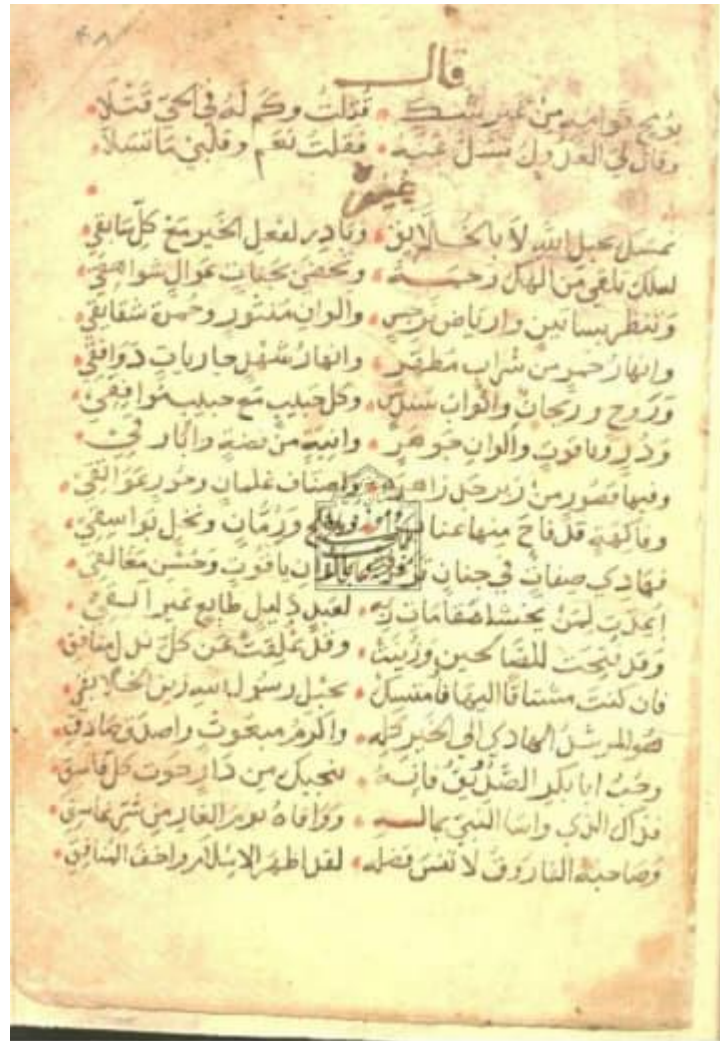 ٤٨
قال
قوامه من غير شك • فدلت وكم له في الحي قتلا •
وقال لي العدول تسل عنه • فقلت نعم وقلبي ما تسلا •
غيره
تمسك بحبل الله لا بالخلائق • وبادر لفعل الخير مع كل سابقي •
لعلك تلقى من الهك رحمة • وتحضى بجنات عوال شواهقي •
وتنظر بساتين وارياض نرجس • والوان منثور وحمرة شقايقي •
وانهار خمر من شراب مطهر • وانهار شهل جاريات دوافقي •
وروح وريحان والوان سندس • وكل حبيب مع حبيب موافقي •
ودر وياقوت والوان جوهر • وانية من فضة واباريقي •
وفيها قصور من زبرجد زاهره • واصناف غلمان وحور عواتقي •
وفاكهة قد فاح منها • ورمان ونخل بواسقي •
فهادي صفات في جنان • بالوان ياقوت وحسن مغالقي •
اعدت لمن يخشا مقامات ربه • لعبد دليل طايع غير
وقد فتحت للصالحين وزينت • وقد غلقت عن كل نذل منافق •
فان كنت مشتاقا اليها فامتسك • بحبل رسول الله زين الخلايقي •
هو المرسل الهادي الى الخير كله • واكرم مبعوث واصدق صادق •
وحب ابا بكر الصديق فانه • ينجيك من دار حوت كل فاسق •
فداك الذي واسا النبي بماله • ووافاه يوم الغار من شر غاسق •
وصاحبه الفاروق لا تنس فضله • لقد اظهر الاسلام واخفى المنافق •